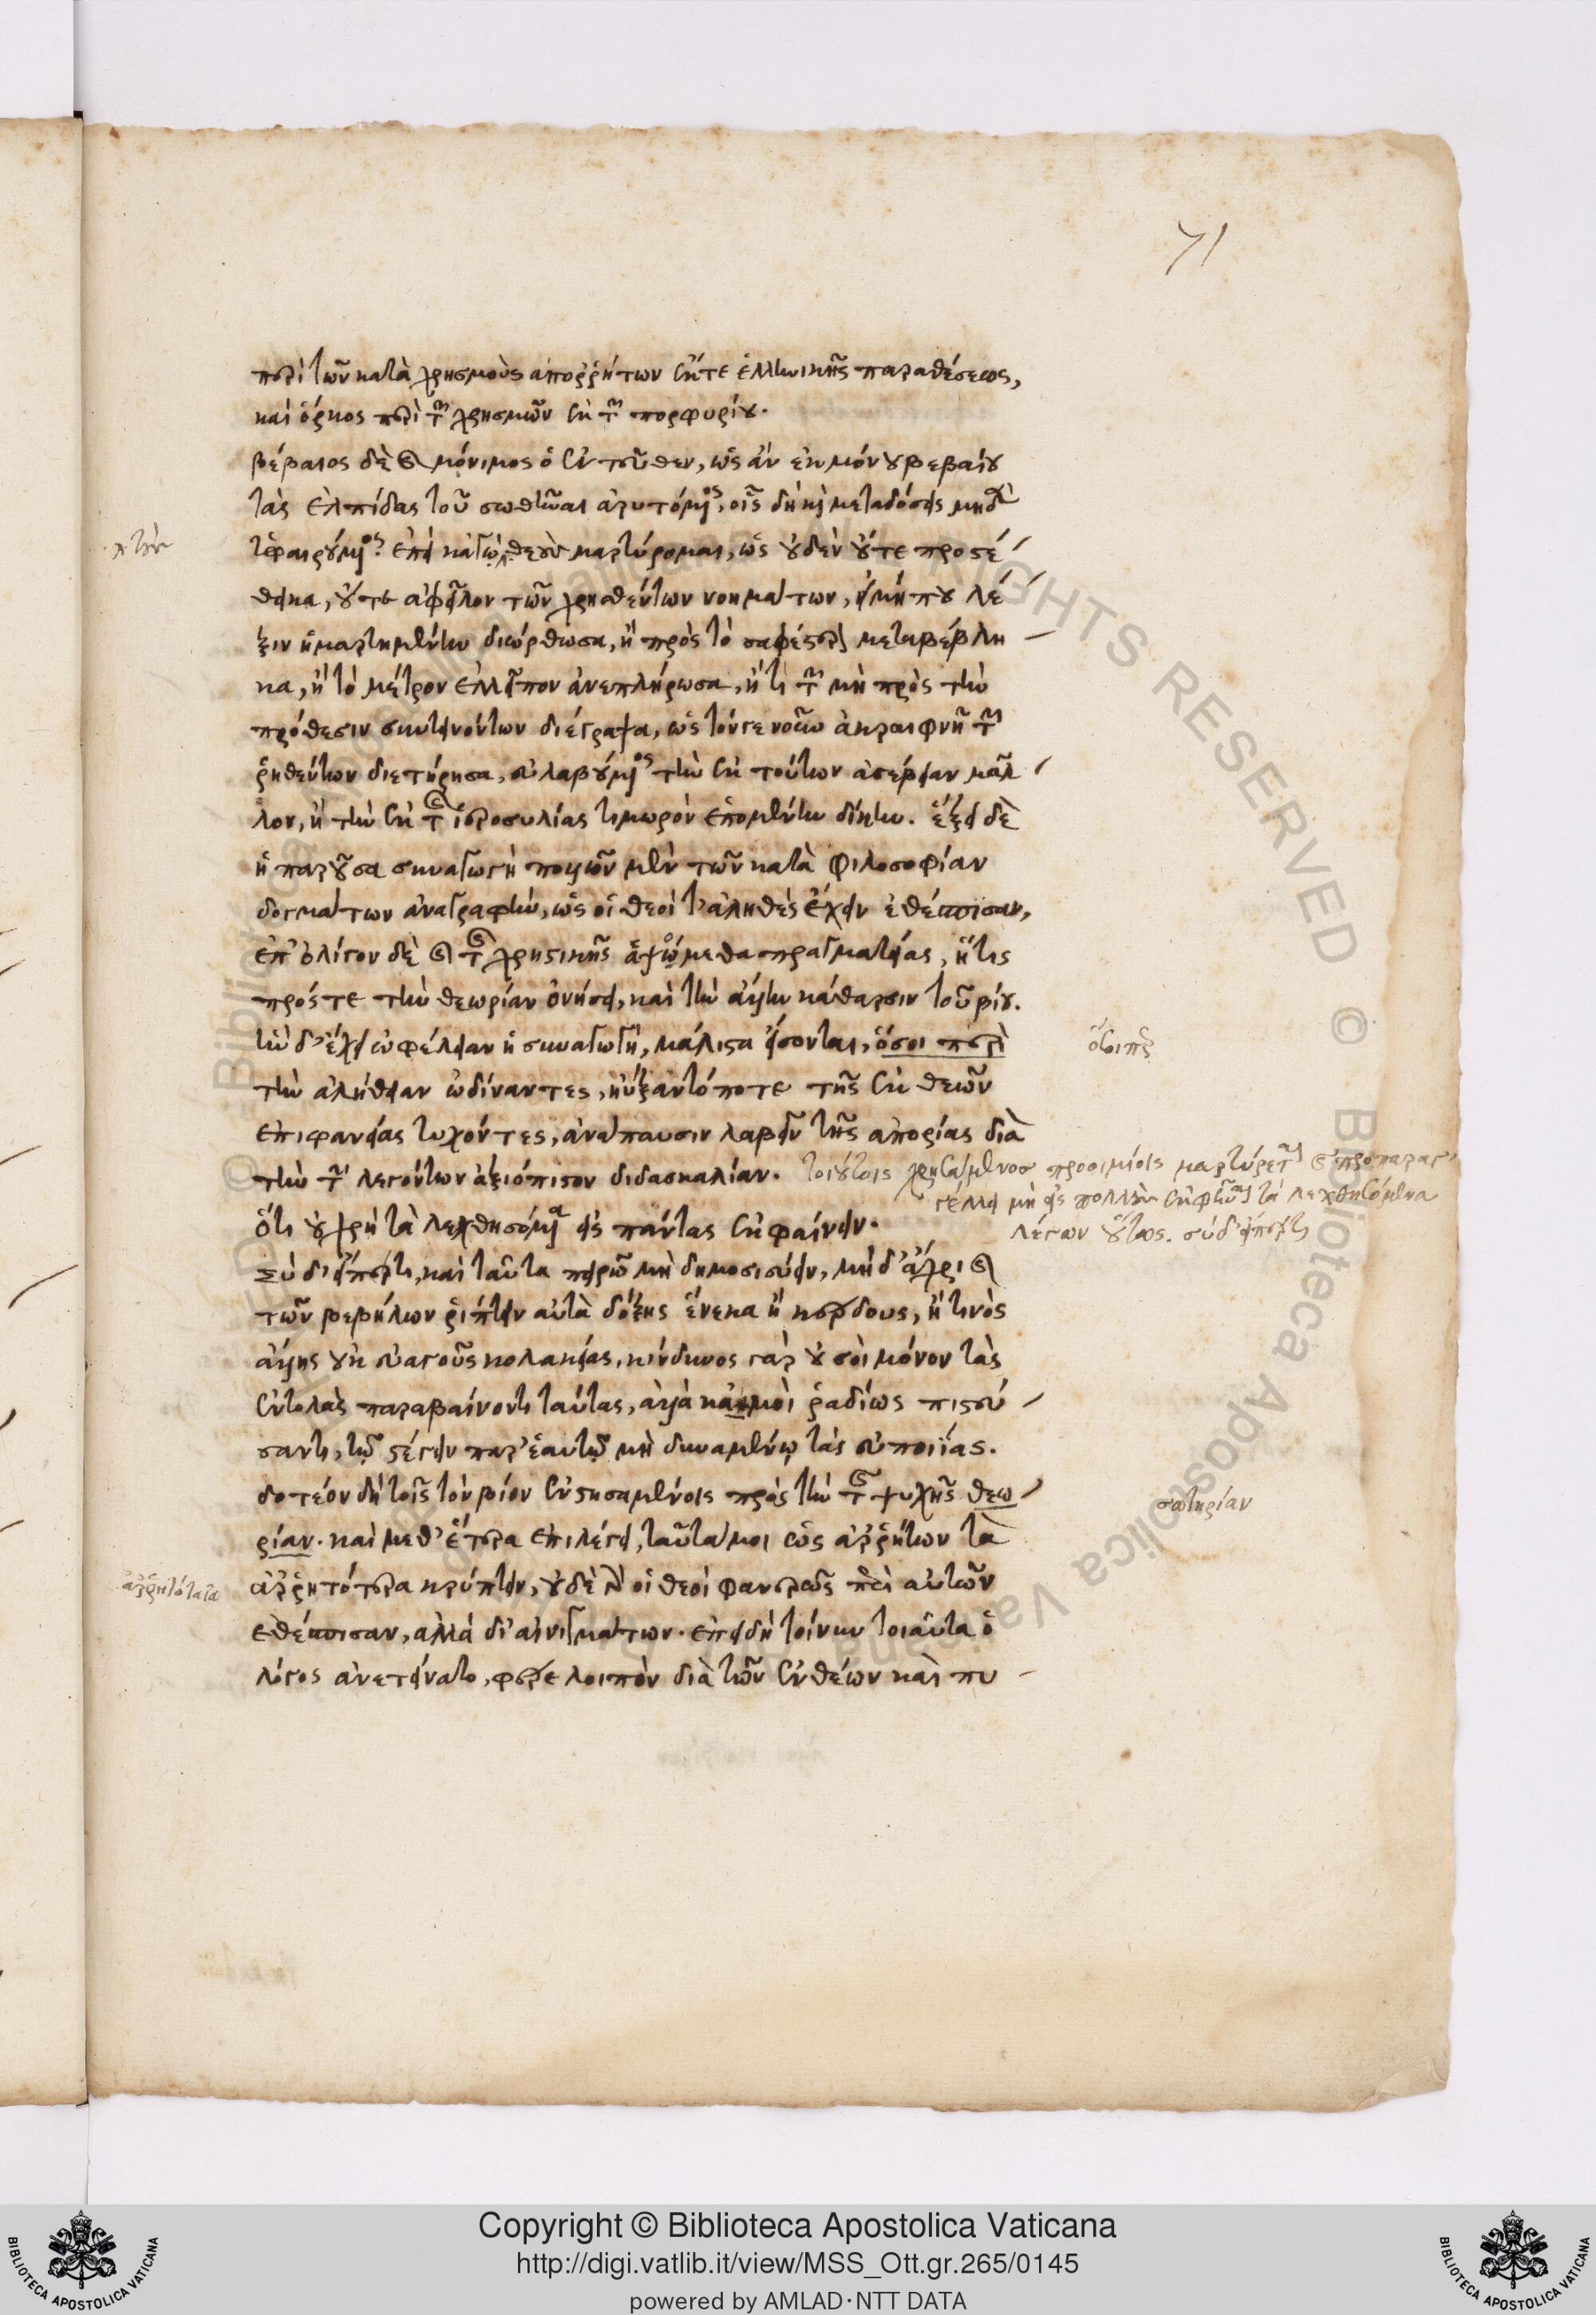 71
περὶ τῶν κατὰ χρησμοὺς ἀπορρήτων ἔκ τε ἑλληνικῆς παραθέσεως,
καὶ ὅρκος περὶ τῶν χρησμῶν ἐκ τῶν πορφυρίου.
βέβαιος δὲ καὶ μόνιμος ὁ ἐντεῦθεν, ὡς ἂν ἐκ μόνου βεβαίου
τὰς ἐλπίδας τοῦ σωθῆναι ἀρυτόμενος, οἷς δὴ καὶ μεταδώσεις μηδὲν
ὑφαιρούμενος. ἐπεὶ κἀγὼ θεοὺς μαρτύρομαι, ὡς οὐδὲν οὔτε προστέ
θεικα, οὔτε ἀφεῖλον τῶν χρησθέντων νοημάτων, εἰ μή που λέ
ξιν ἡμαρτημένην διώρθωσα, ἢ πρὸς τὸ σαφέστερον μεταβέβλη
κα, ἢ τὸ μέτρον ἐλλεῖπον ἀνεπλήρωσα, ἤ τι τῶν μὴ πρὸς τὴν
πρόθεσιν συντεινόντων διέγραψα, ὡς τόν γε νοῦν ἀκραιφνῆ τῶν
ῥηθέντων διετήρησα, εὐλαβούμενος τὴν ἐκ τούτων ἀσέβειαν μᾶλ
λον, ἢ τὴν ἐκ τῆς ἱεροσυλίας τιμωρὸν ἑπομένην δίκην. ἕξει δὲ
ἡ παροῦσα συναγωγὴ πολλῶν μὲν τῶν κατὰ φιλοσοφίαν
δογμάτων ἀναγραφὴν, ὡς οἱ θεοὶ τ' ἀληθὲς ἔχειν ἐθέσπισαν,
ἐπ' ὀλίγον δὲ καὶ τῆς χρηστικῆς ἁψώμεθα πραγματείας, ἥτις
πρός τε τὴν θεωρίαν ὀνήσει, καὶ τὴν ἄλλην κάθαρσιν τοῦ βίου.
ἣν δ' ἔχει ὠφέλειαν ἡ συναγωγὴ, μάλιστα εἴσονται, ὅσοι περὶ
τὴν ἀλήθειαν ὠδίναντες, ηὔξαντό ποτε τῆς ἐκ θεῶν
ἐπιφανείας τυχόντες, ἀνάπαυσιν λαβεῖν τῆς ἀπορίας διὰ
τὴν τῶν λεγόντων ἀξιόπιστον διδασκαλίαν. τοιούτοις χρησάμενος προοιμίοις μαρτύρεται καὶ προπαραγ
γέλλει μὴ εἰς πολλοὺς ἐκφῆναι τὰ λεχθησόμενα
λέγων οὕτως. σὺ δ' εἴπερ τι
ὅτι οὐ χρὴ τὰ λεχθησόμενα εἰς πάντας ἐκφαίνειν.
Σὺ δ' εἴπερ τι, καὶ ταῦτα πειρῶ μὴ δημοσιεύειν, μηδ' ἄχρι καὶ
τῶν βεβήλων ῥίπτειν αὐτὰ δόξης ἕνεκα ἢ κέρδους, ἤ τινος
ἄλλης οὐκ εὐαγοῦς κολακείας, κίνδυνος γὰρ οὐ σοὶ μόνον τὰς
ἐντολὰς παραβαίνοντι ταύτας, ἀλλὰ κἀμοὶ ῥαδίως πιστεύ
σαντι, τῷ στέγειν παρ' ἑαυτῷ μὴ δυναμένῳ τὰς εὐποιΐας.
δοτέον δὴ τοῖς τὸν βίον ἐνστησαμένοις πρὸς τὴν τῆς ψυχῆς θεω
ρίαν. καὶ μεθ' ἕτερα ἐπιλέγει, ταῦτά μοι ὡς ἀρρήτων τὰ
ἀρρητότερα κρύπτειν, οὐδὲ γὰρ οἱ θεοὶ φανερῶς περὶ αὐτῶν
ἐθέσπισαν, ἀλλὰ δι' αἰνιγμάτων. ἐπειδὴ τοίνυν τοιαῦτα ὁ
λόγος ἀνετείνατο, φέρε λοιπὸν διὰ τῶν ἐνθέων καὶ πυ
τοὺς
ὅσοιπερ
σωτηρίαν
ἀρρητότατα
© Biblioteca Apostolica Vaticana
ALL RIGHTS RESERVED
Copyright © Biblioteca Apostolica Vaticana
http://digi.vatlib.it/view/MSS_Ott.gr.265/0145
powered by AMLAD·NTT DATA
BIBLIOTECA APOSTOLICA VATICANA
BIBLIOTECA APOSTOLICA VATICANA